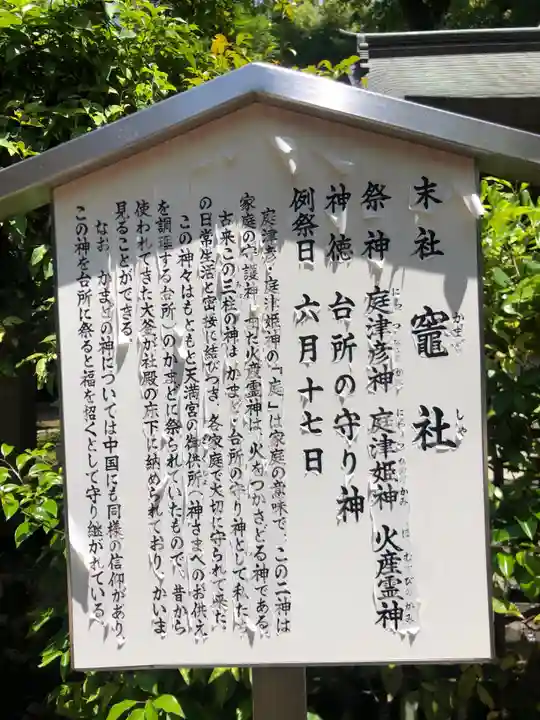 末社 竈社
かまど しゃ
祭神 庭津彦神 庭津姫神 火産霊神
神徳 台所の守り神
例祭日 六月十七日
庭津彦・庭津姫神の『庭』は家庭の意味で、この二神は
家庭の守護神、また火産霊神は、火をつかさどる神である。
古来この三柱の神は、かまど・台所の守り神として私た
の日常生活と密接に結びつき、各家庭で大切に守られて来た。
この神々はもともと天満宮の御供所(神さまへのお供え
を調理する台所)のかまどに祭られていたもので、昔から
使われてきた大釜が社殿の床下に納められており、かいま
見ることができる。
なお、かまどの神については中国にも同様の信仰があり、
この神を台所に祭ると福を招くとして守り継がれている。